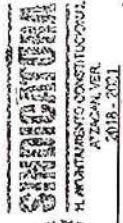 SINDICATURA
H. AYUNTAMIENTO CONSTITUCIONAL
ATZACAN, VER.
2018 - 2021